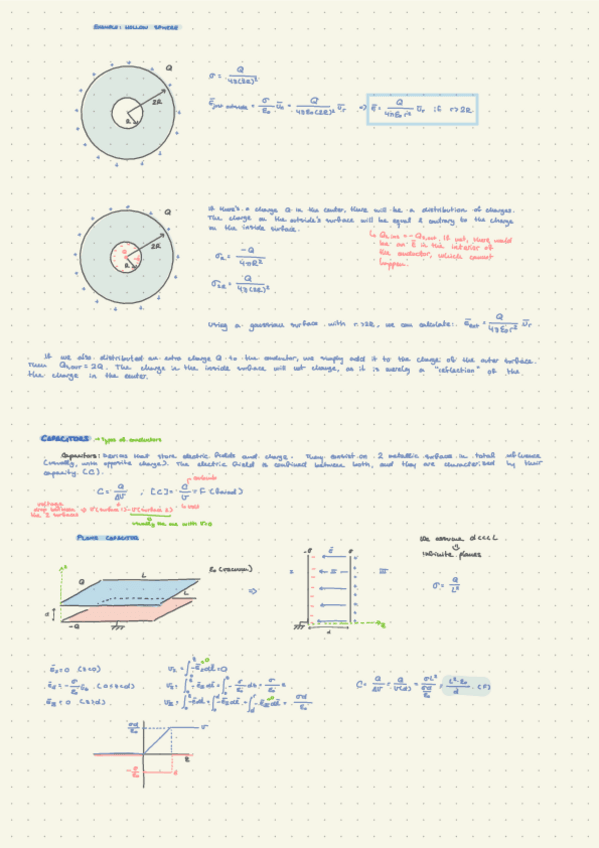 EXAMPLE: HOLLOW SPHERE
Q
2R
R
σ = Q / 4π(2R)²
E just outside = σ/ε₀ ūₙ = Q / 4πε₀(2R)² ūᵣ => Ē = Q / 4πε₀r² ūᵣ if r>2R
Q
2R
R
If there's a charge Q in the center, there will be a distribution of charges.
The charge on the outside's surface will be equal & contrary to the charge
on the inside surface.
If not, there would
be an Ē in the interior of
the conductor, which cannot
happen.
σR = -Q / 4πR²
σ2R = Q / 4π(2R)²
Using a gaussian surface with r>2R, we can calculate: Ēext = Q / 4πε₀r² ūᵣ
If we also distributed an extra charge Q to the conductor, we simply add it to the charge of the outer surface.
Then Qsour = 2Q. The charge in the inside surface will not change, as it is merely a "reflection" of the
the charge in the center.
CAPACITORS → Type of conductors
Capacitors: Devices that store electric fields and charge. They consist on 2 metallic surface in total influence
(usually, with opposite charge). The electric field is confined between both, and they are characterised by their
capacity (C).
C = Q / ΔV ; [C] = C / V = F (farad)
coulomb
volt
voltage
drop between
the 2 surfaces
→ V(surface 1) - V(surface 2)
usually the one with V=0
PLANE CAPACITOR
Q
L
L
d
-Q
ε₀ (vacuum)
=>
-σ
Ē
σ
d
z
We assume d<<<L
infinite planes
σ = Q / L²
Ē₁ = 0 (z<0)
V₁ = 0
C = Q / ΔV = Q / V(d) = σL² / (σd/ε₀) = L²·ε₀ / d (F)
σd/ε₀
V
z
-σ/ε₀
d